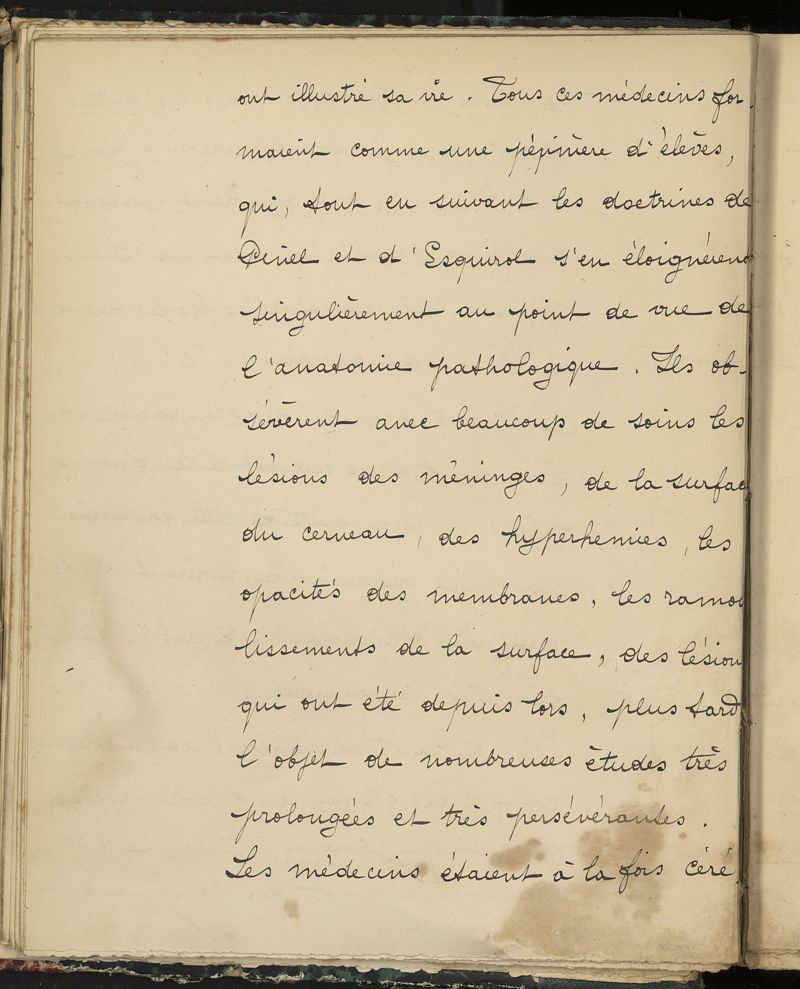 ont illustré sa vie. Tous ces médecins for-
maient comme une pépinière d'élèves,
qui, tout en suivant les doctrines de
Pinel et d'Esquirol s'en éloignèrent
singulièrement au point de vue de
l'anatomie pathologique. Ils ob-
sévèrent avec beaucoup de soins les
lésions des méninges, de la surface
du cerveau, des hyperhemies, les
opacités des membranes, les ramol
lissements de la surface, des lésions
qui ont été depuis lors, plus tard
l'objet de nombreuses études très
prolongées et très persévérantes.
Les médecins étaient à la fois céré